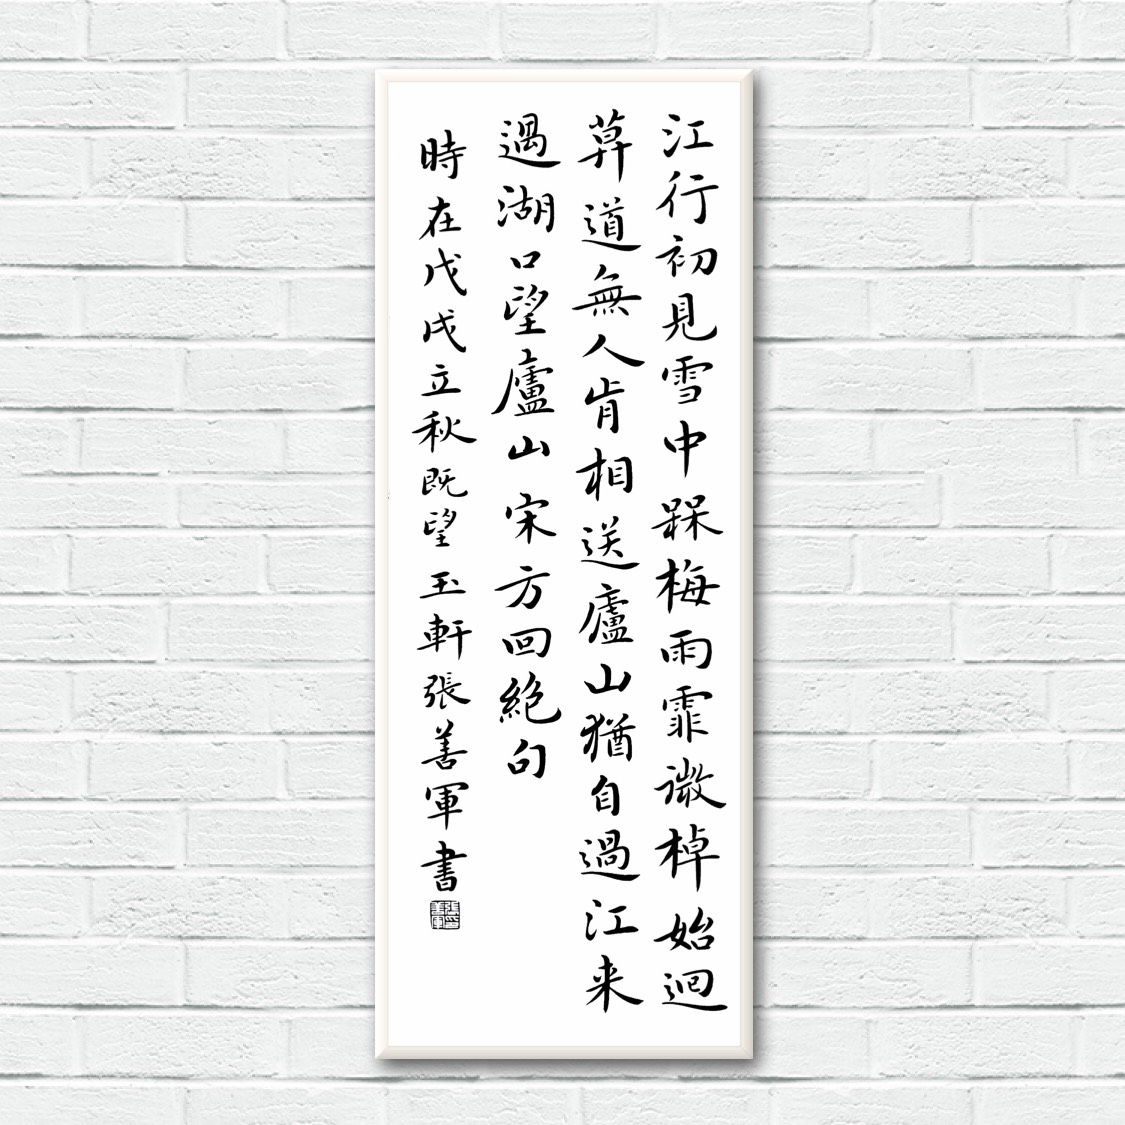 江行初見雪中槑梅雨霏微棹始迴
莫道無人肯相送廬山猶自過江来
過湖口望廬山宋方回絕句
時在戊戌立秋既望玉軒張善軍書
張善軍印